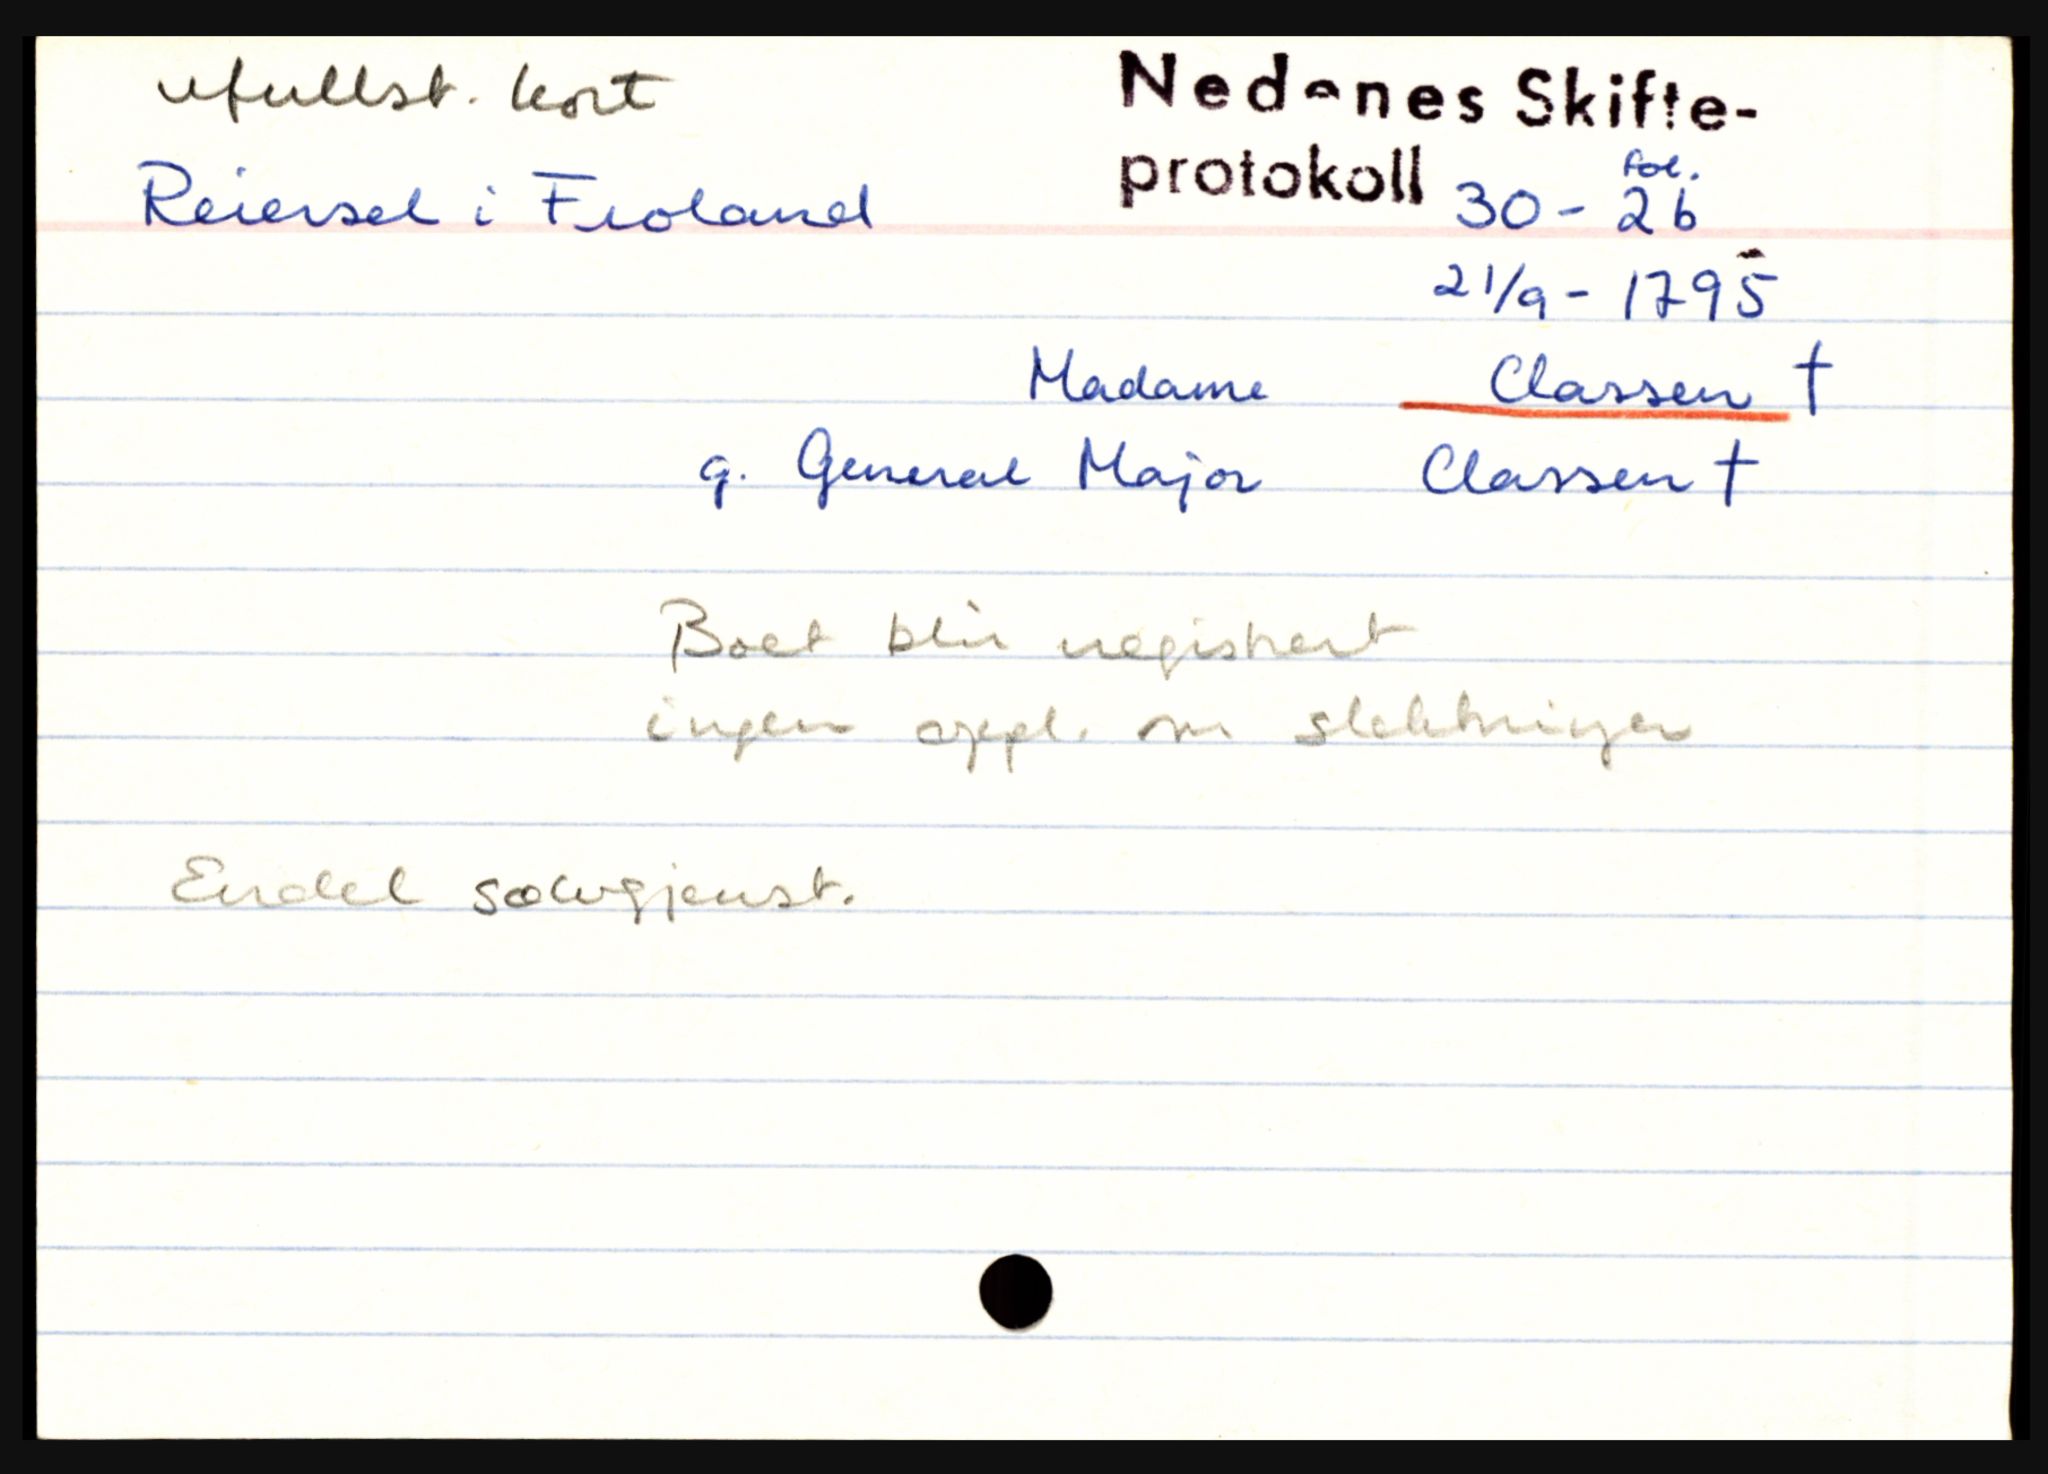 ufullst. kort
Nedenes Skifte-
protokoll
fol.
30 - 2b
Reiersel i Froland
21/9 - 1795
Madame Classen †
g. General Major Classen †
Boet blir registrert
ingen oppl. om slektninger
Endel sølvgjenst.